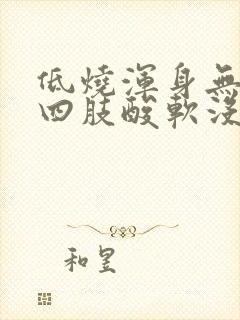 低燒渾身無
四肢酸軟沒
和昱